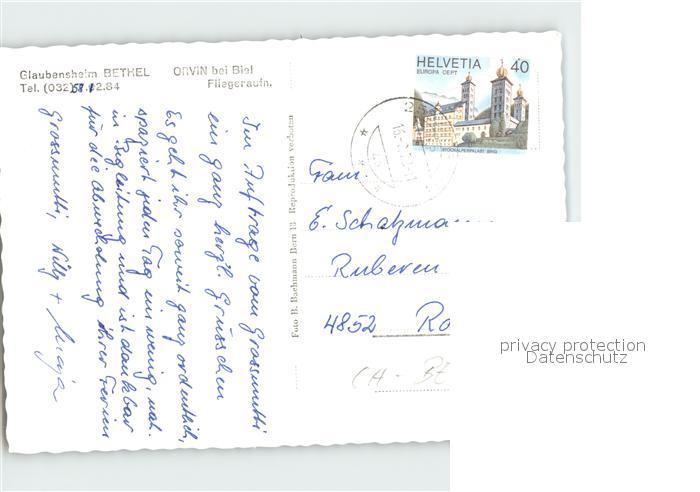 Glaubensheim BETHEL ORVIN bei Biel
Tel. (032) 58.12.84 Fliegeraufn.
Im Auftrage vom Grossmutti
ein ganz herzl. Grüsschen
Es geht ihr soweit ganz ordentlich,
spaziert jeden Tag ein wenig, nat.
in Begleitung und ist dankbar
für die Abwechslung ihrer Ferien
Grossmutti, Willy +
Foto B. Bachmann Bern 13 Reproduktion verboten
HELVETIA 40
EUROPA CEPT
STOCKALPERPALAST BRIG
Frau
E. Schatzma
Ruberen
4852 Ro
CH - BE
privacy protection
Datenschutz